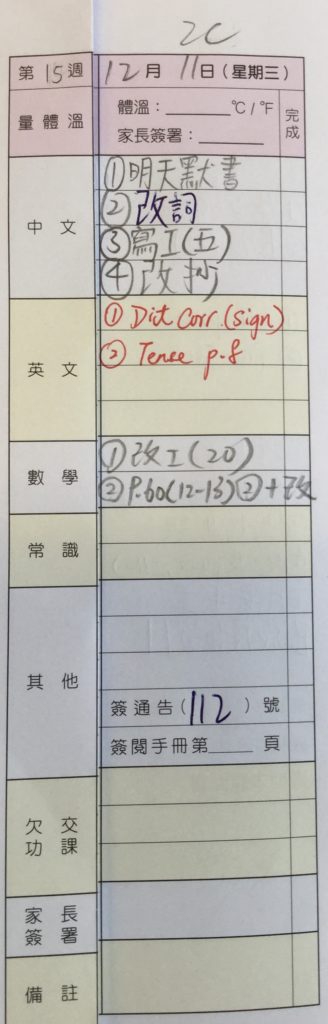 2C
第 15 週 12 月 11 日 (星期三)
量體溫 體溫：______ °C / °F 完成
家長簽署：______
中文 ①明天默書
②改詞
③寫工(五)
④改抄
英文 ① Dict Corr. (sign)
② Tense p.8
數學 ①改工(20)
②P.60(12-13)②+改
常識
其他
簽通告(112)號
簽閱手冊第____頁
欠交功課
家長簽署
備註